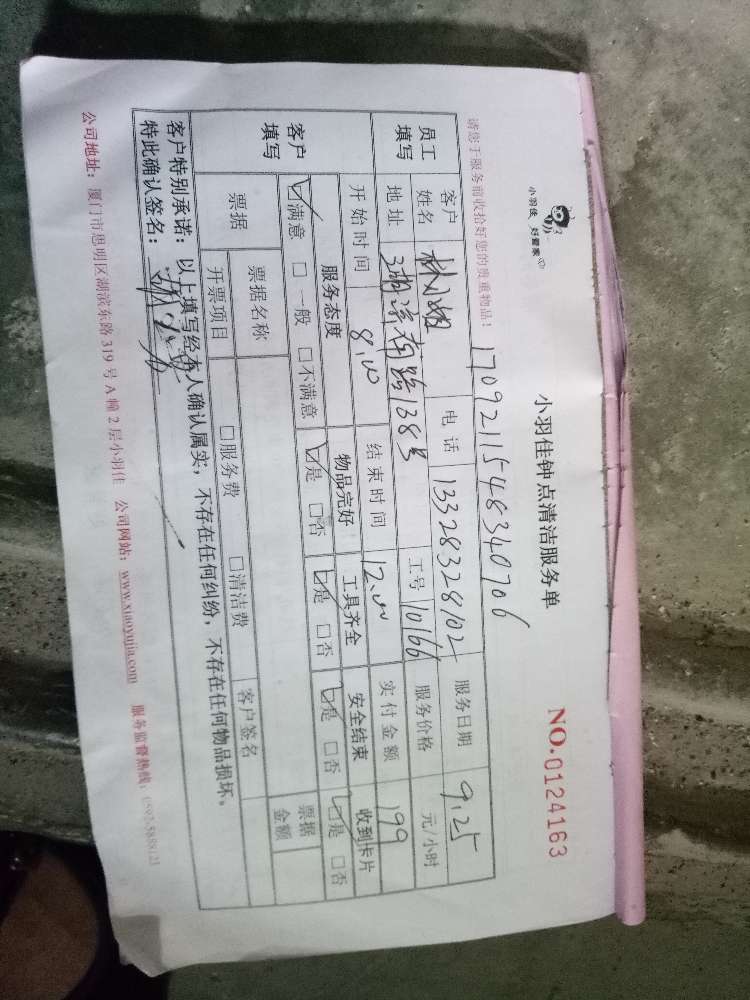 小羽佳 好管家
小羽佳钟点清洁服务单
NO.0124163
请您于服务前收拾好您的贵重物品！
1709211548340706
员工填写 客户姓名 林小姐 电话 13328328102 服务日期 9.25
地址 路138号 工号 10166 服务价格 元/小时
开始时间 8.00 结束时间 12.00 实付金额 199
客户填写 服务态度 物品完好 工具齐全 安全结束 收到卡片
☑满意 □一般 □不满意 ☑是 □否 ☑是 □否 ☑是 □否 ☑是 □否
票据 票据名称 客户签名 票据金额
开票项目 □服务费 □清洁费
客户特别承诺：以上填写经本人确认属实，不存在任何纠纷，不存在任何物品损坏。
特此确认签名：
公司地址：厦门市思明区湖滨东路319号A幢2层小羽佳 公司网站：www.xiaoyujia.com 服务监督热线：